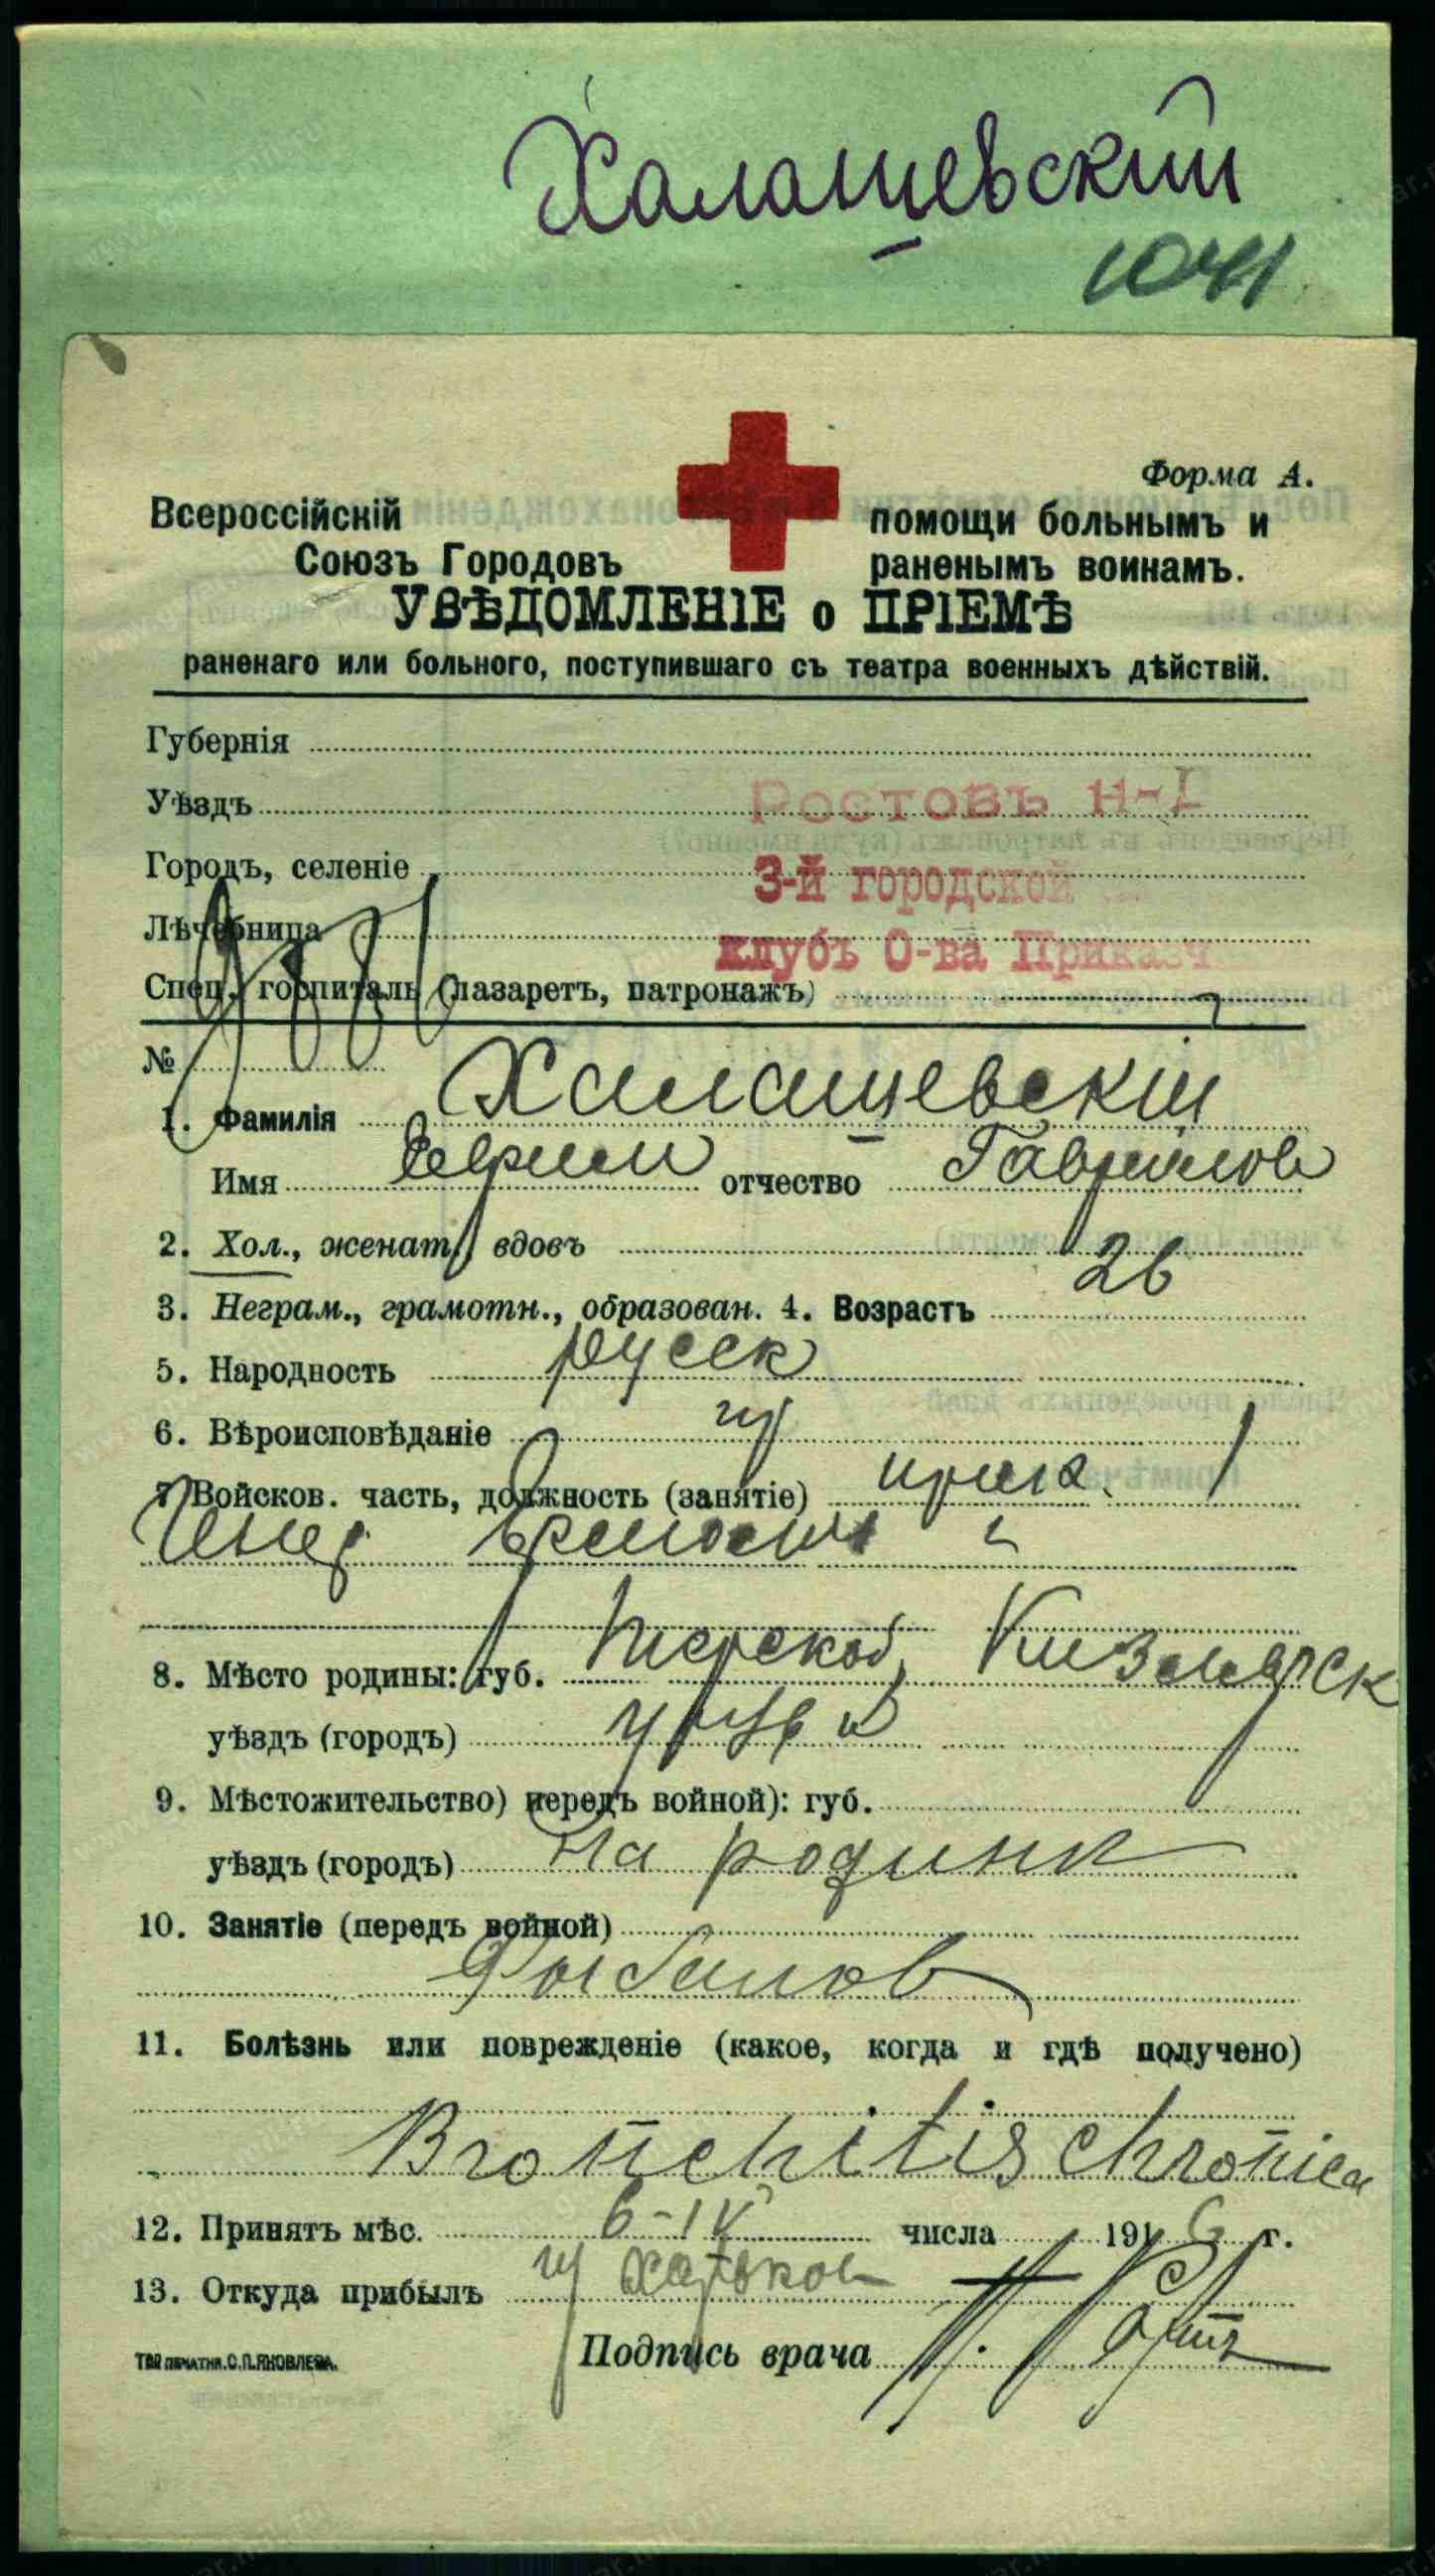 Халащевский
1041
Форма А.
Всероссійскій
Союзъ Городовъ
помощи больнымъ и
раненымъ воинамъ.
УВѢДОМЛЕНІЕ о ПРІЕМѢ
раненаго или больного, поступившаго съ театра военныхъ дѣйствій.
Губернія
Уѣздъ Ростовъ н-Д
Городъ, селеніе 3-й городской
Лѣчебница клубъ О-ва Приказч
Спец. госпиталь (лазаретъ, патронажъ)
№
1. Фамилія Халащевскій
Имя отчество Гаврилов
2. Хол., женат, вдовъ
3. Неграм., грамотн., образован. 4. Возрастъ 26
5. Народность русск
6. Вѣроисповѣданіе пр
7. Войсков. часть, должность (занятіе)
8. Мѣсто родины: губ. Терской, Кизлярск
уѣздъ (городъ)
9. Мѣстожительство) передъ войной): губ.
уѣздъ (городъ) На родинѣ
10. Занятіе (передъ войной)
Рыболов
11. Болѣзнь или поврежденіе (какое, когда и гдѣ получено)
Bronchitis chronica
12. Принятъ мѣс. 6-IV числа 1916 г.
13. Откуда прибылъ Харьков
Подпись врача
ТВО ПЕЧАТНЯ.С.П.ЯКОВЛЕВА.